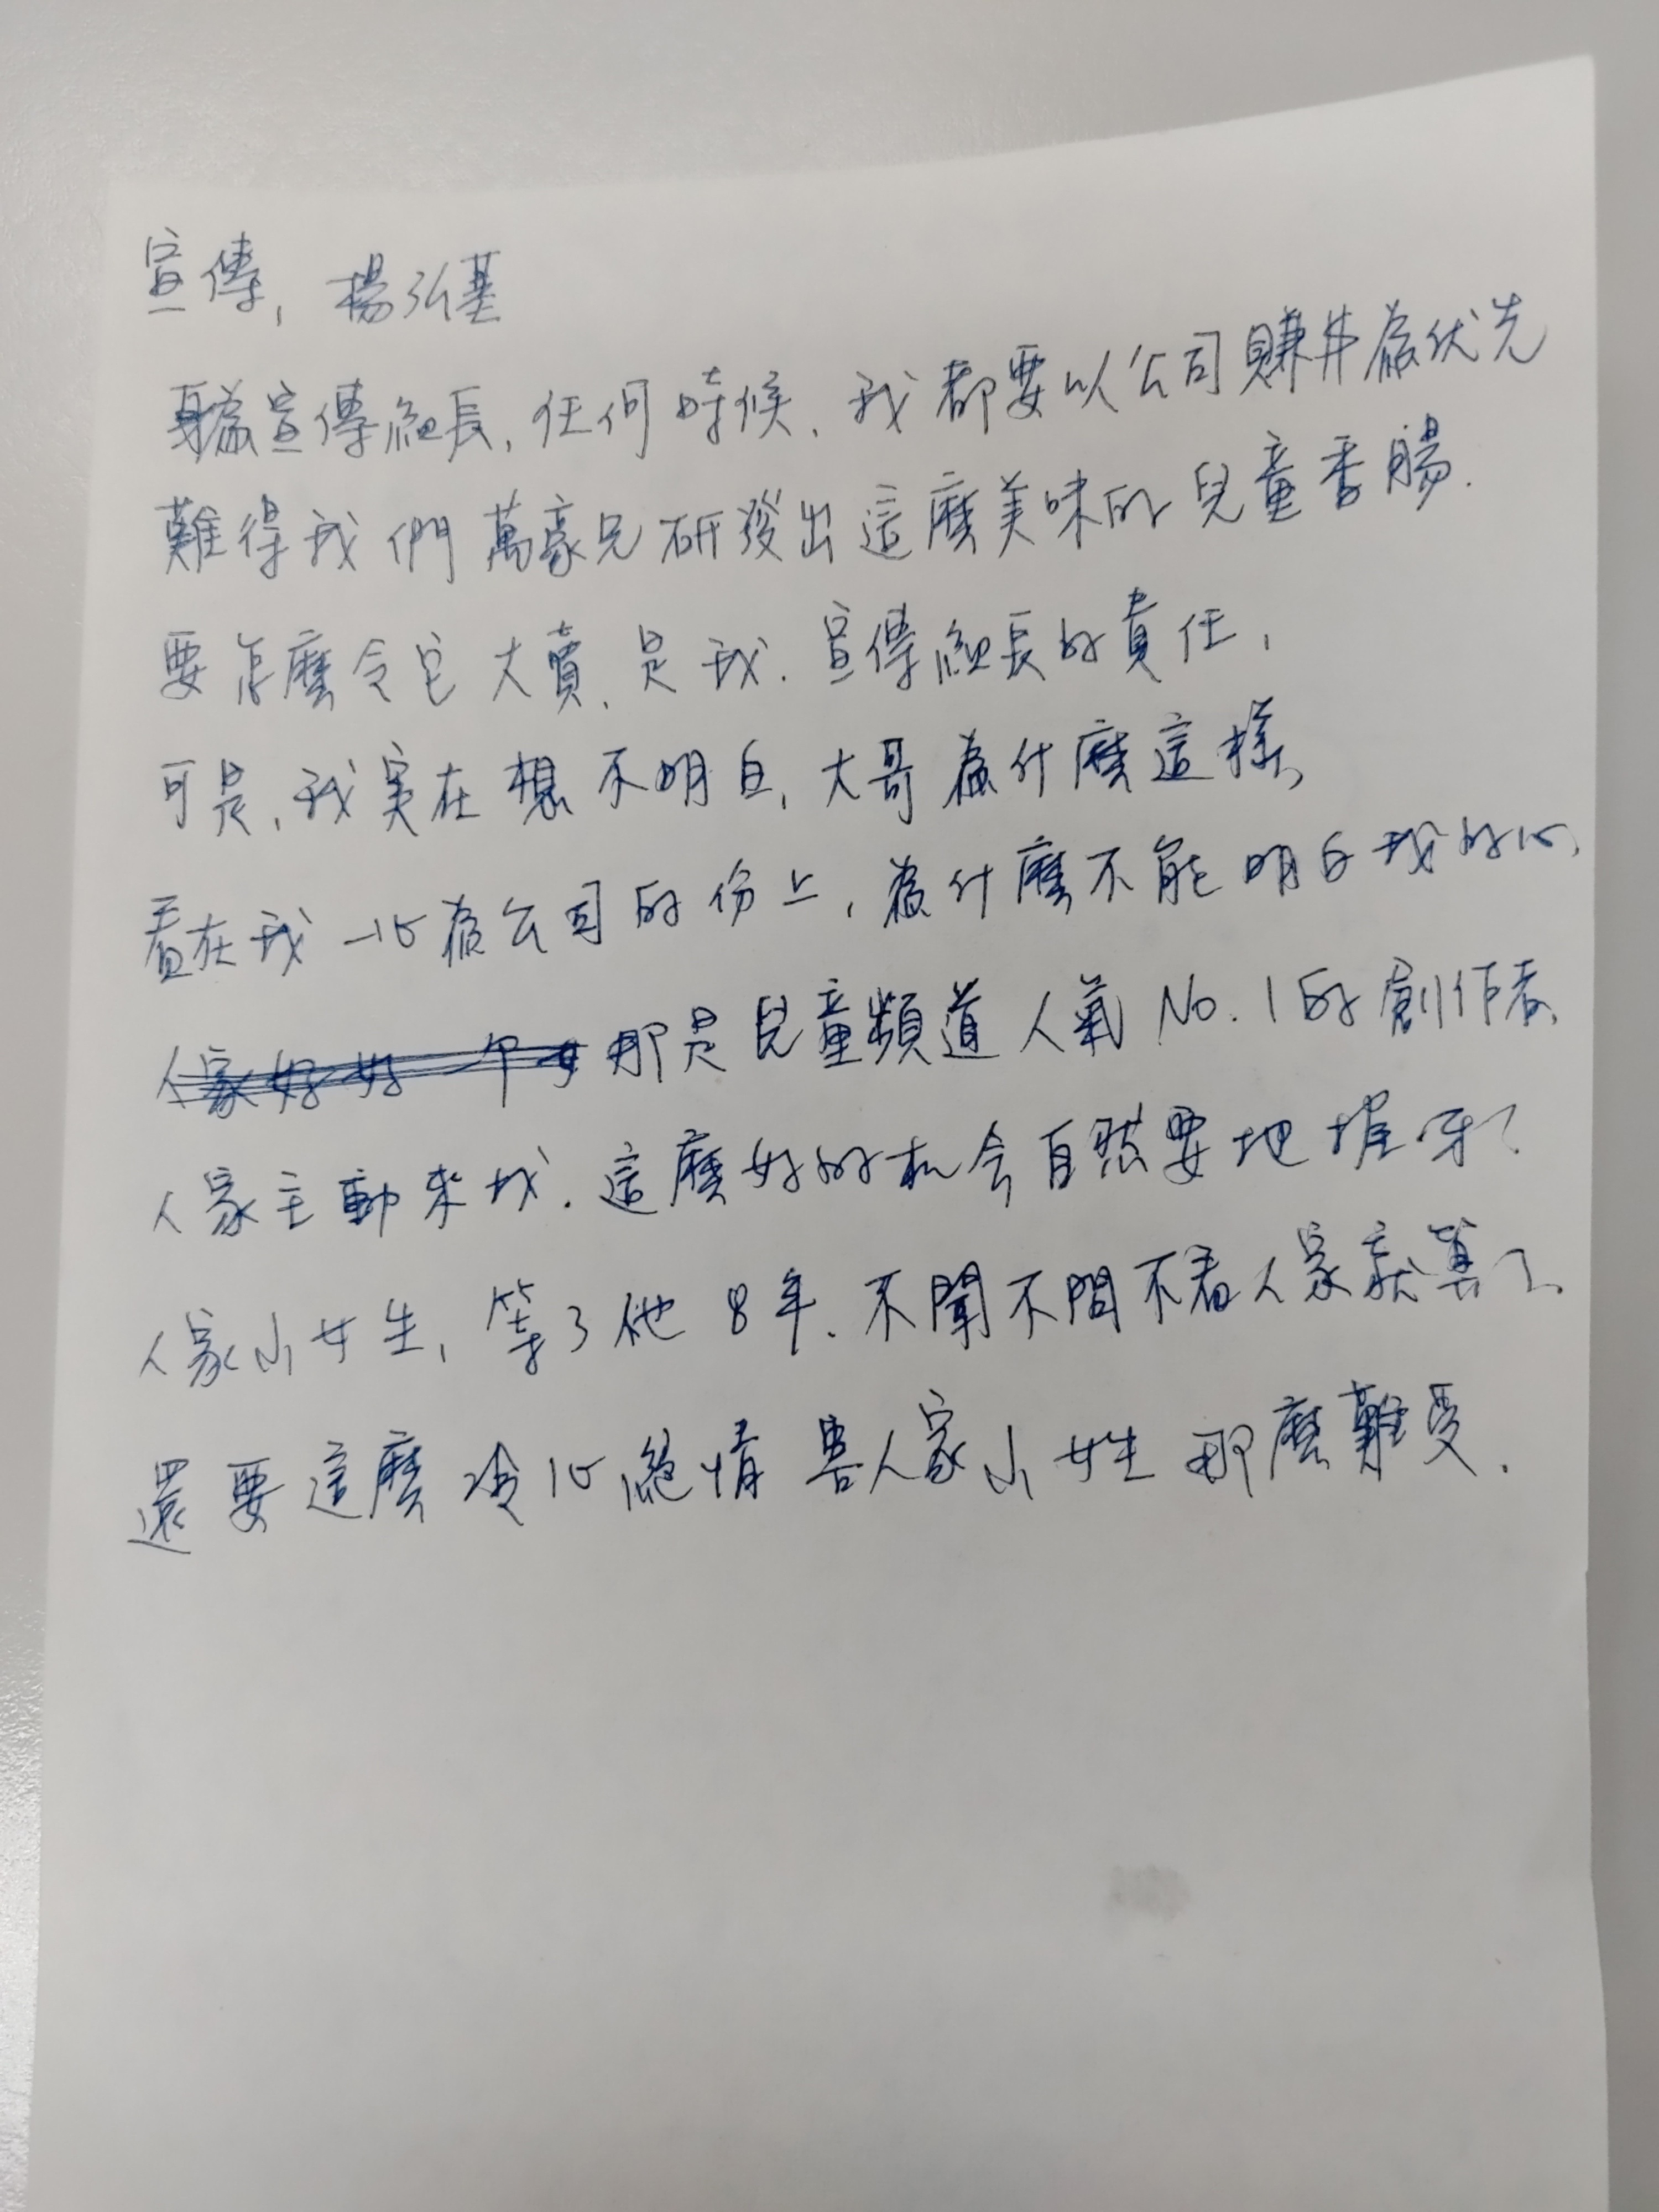 宣傳, 楊弘基
為宣傳組長, 任何時候, 我都要以公司賺為优先
難得我們萬豪兄研發出這麼美味的兒童香腸.
要怎麼令它大賣, 是我. 宣傳組長的責任,
可是, 我実在想不明白, 大哥為什麼這樣,
看在我一心為公司的份上, 為什麼不能明白我的心,
那是兒童頻道人氣No.1的創作者,
人家主動來找. 這麼好的机会自然要把握呀?
人家小女生, 等了他8年. 不聞不問不看人家就算了,
還要這麼冷心絕情害人家小女生那麼難受.